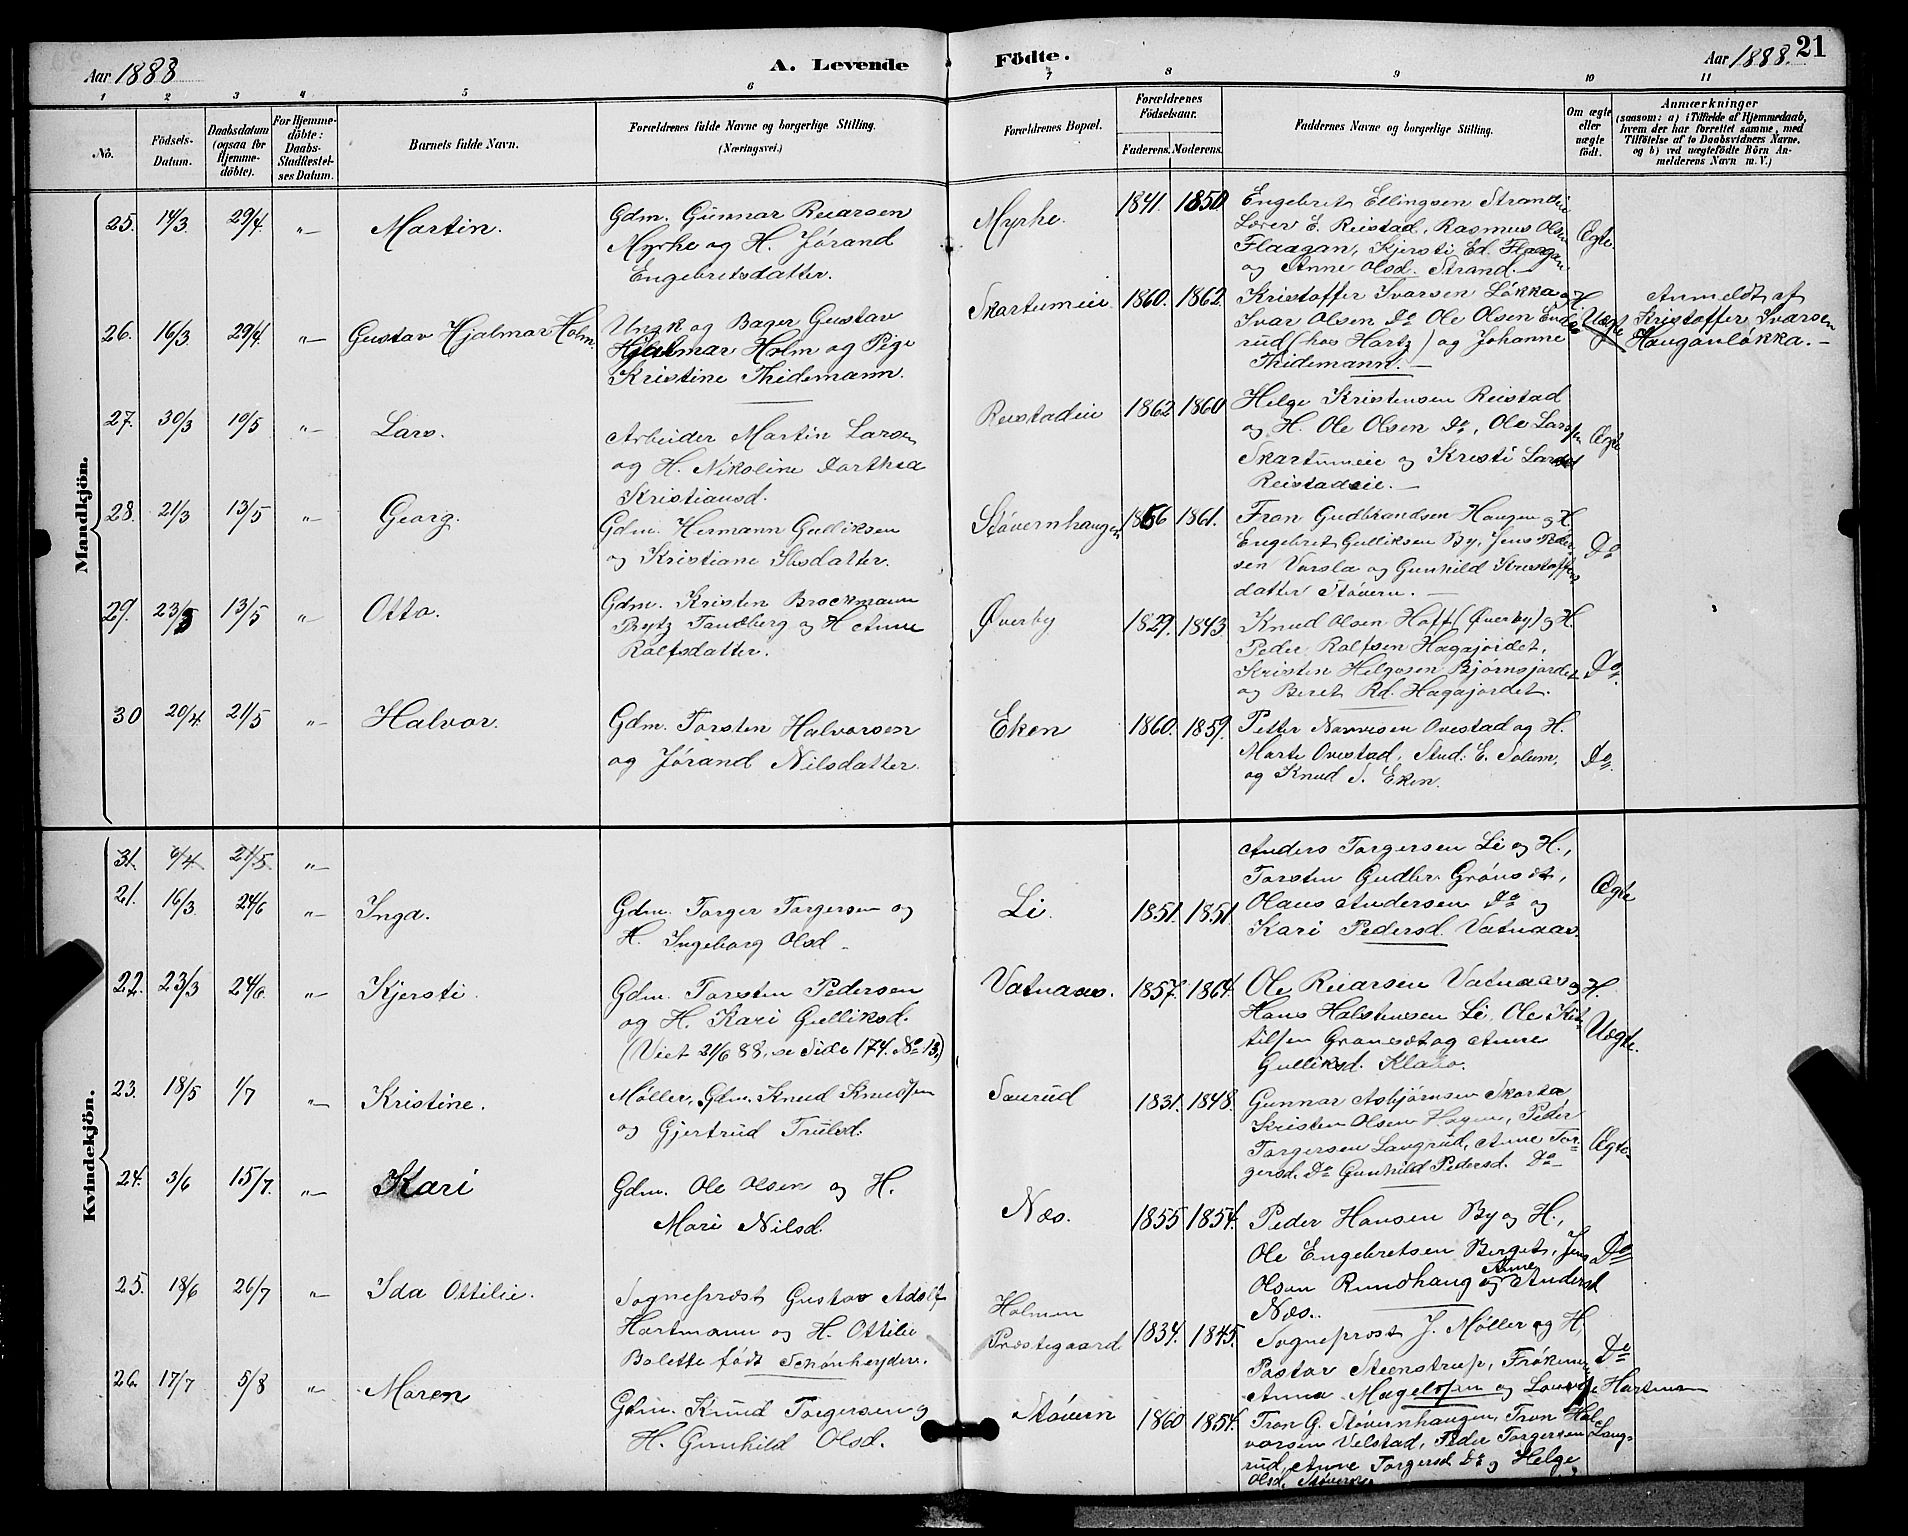 Aar 1888
A. Levende
Födte.
Aar 1888.
21
1 2 3 4 5 6 7 8 9 10 11
No.
Födsels-
Datum.
Daabsdatum
(ogsaa for
Hjemme-
döbte).
For Hjemme-
döbte:
Daabs-
Stadfestel-
ses Datum.
Barnets fulde Navn.
Forældrenes fulde Navne og borgerlige Stilling.
(Næringsvei.)
Forældrenes Bopæl.
Forældrenes
Födselsaar.
Faderens. Moderens.
Faddernes Navne og borgerlige Stilling.
Om ægte
eller
uægte
født.
Anmærkninger
(saasom: a) i Tilfælde af Hjemmedaab,
hvem der har forrettet samme, med
Tilföielse af to Daabsvidners Navne,
og b) ved uægtefödte Börn An-
melderens Navn m. V.)
Mandkjön.
25. 14/3 29/4. " Martin.
Gdm. Gunnar Reiarsen
Myrhe og H. Jørand
Engebretsdatter.
Myrhe. 1841. 1850
Engebret Ellingsen Strandie
Lærer E. Reistad, Rasmus Olsen
Flaagan, Kjersti Ed. Flaagan
og Anne Olsd. Strand.
Ægte.
26. 16/3 29/4. " Gustav Hjalmar Holm.
Ungk og Bager Gustav
Hjalmar Holm og Pige
Kristine Thidemann.
Skartumeie 1860. 1862.
Kristoffer Ivarsen Løkka og H
Ivar Olsen Do Ole Olsen
rud (hos Hartz) og Johanne
Thidemann.
Uægte
Anmeldt af
Kristoffer Ivarsen
Hauganløkka.
27. 30/3 10/5 " Lars.
Arbeider Martin Larsen
og H. Nikoline Dorthea
Kristiansd.
Reistadeie 1862 1860
Helge Kristensen Reistad
og H. Ole Olsen Do, Ole Larssen
Skartumeie og Kristi Larsd
Reistadeie.
Ægte
28. 21/3 13/5 " Georg.
Gdm. Hermann Gulliksen
og Kristiane Ilsdatter.
Støvernhaugen 1856 1861.
Tron Gudbrandsen Haugen og H.
Engebret Gulliksen By, Jens Peder
sen Varsla og Gunhild Kristoffers
datter Støvern.
Do
29. 23/3 13/5 " Otto.
Gdm. Kristen Brockmann
Brytz Tandberg og H Anne
Rolfsdatter.
Øverby 1829. 1843
Knud Olsen Hoff (Øverby) og H.
Peder Rolfsen Hagajordet,
Kristen Helgesen Bjørnsjordet
og Beret Rd. Hagajordet.
Do.
30 20/4 21/5 " Halvor.
Gdm. Torsten Halvorsen
og Jørand Nilsdatter.
Eken 1860. 1859.
Petter Narvesen Ovestad og H.
Marte Ovestad, Stud. E. Solem,
og Knud S. Eken.
Do.
Kvindekjön.
31. 6/4 21/5 "
21. 16/3 24/6 " Inga.
Gdm. Torger Torgersen og
H. Ingeborg Olsd
Li. 1851. 1851
Anders Torgersen Li og H.,
Torsten Gudbr. Grønset,
Olaus Andersen Do og
Kari Pedersd. Vatnaas.
Ægte
22. 23/3 24/6. " Kjersti.
Gdm. Torsten Pedersen
og H. Kari Gulliksd.
(Viet 21/6 88, se Side 174. No 13.)
Vatnaas. 1857. 1864.
Ole Reiarsen Vatnaas og H.
Hans Halstensen Li, Ole Ket-
tilsen Grønset og Anne
Gulliksd.
Uægte.
23. 18/5 1/7 " Kristine.
Møller, Gdm. Knud Knudsen
og Gjertrud Trulsd.
Saurud 1831. 1848.
Gunnar Asbjørnsen Skarta
Kristen Olsen Hagen, Peder
Torgersen Langrud, Anne Tor-
gersd. Do Gunhild Pedersd. Do
Ægte
24. 3/6 15/7. " Kari
Gdm. Ole Olsen og H.
Mari Nilsd.
Næs. 1855 1854.
Peder Hansen By og H.,
Ole Engebretsen Berget, Jens
Olsen Rundhaug og Anne Andersd
Næs.
Do
25. 18/6 26/7 " Ida Ottilie.
Sogneprest Gustav Adolf
Hartmann og H. Ottilie
Bolette født Schönheyder.
Holmen
Præstegaard 1834. 1845.
Sogneprest J. Møller og H,
Pastor Steenstrup, Frøkenerne
Anna Magelssen og Hartman
Do
26. 17/7 5/8 " Maren
Gdm. Knud Torgersen og
H. Gunhild Olsd.
Støvern 1860 1854.
Tron G. Støvernhaugen, Tron Hal-
vorsen Velstad, Peder Torgersen Lang-
rud, Anne Torgersd Do og Helge
Olsd. Støvern